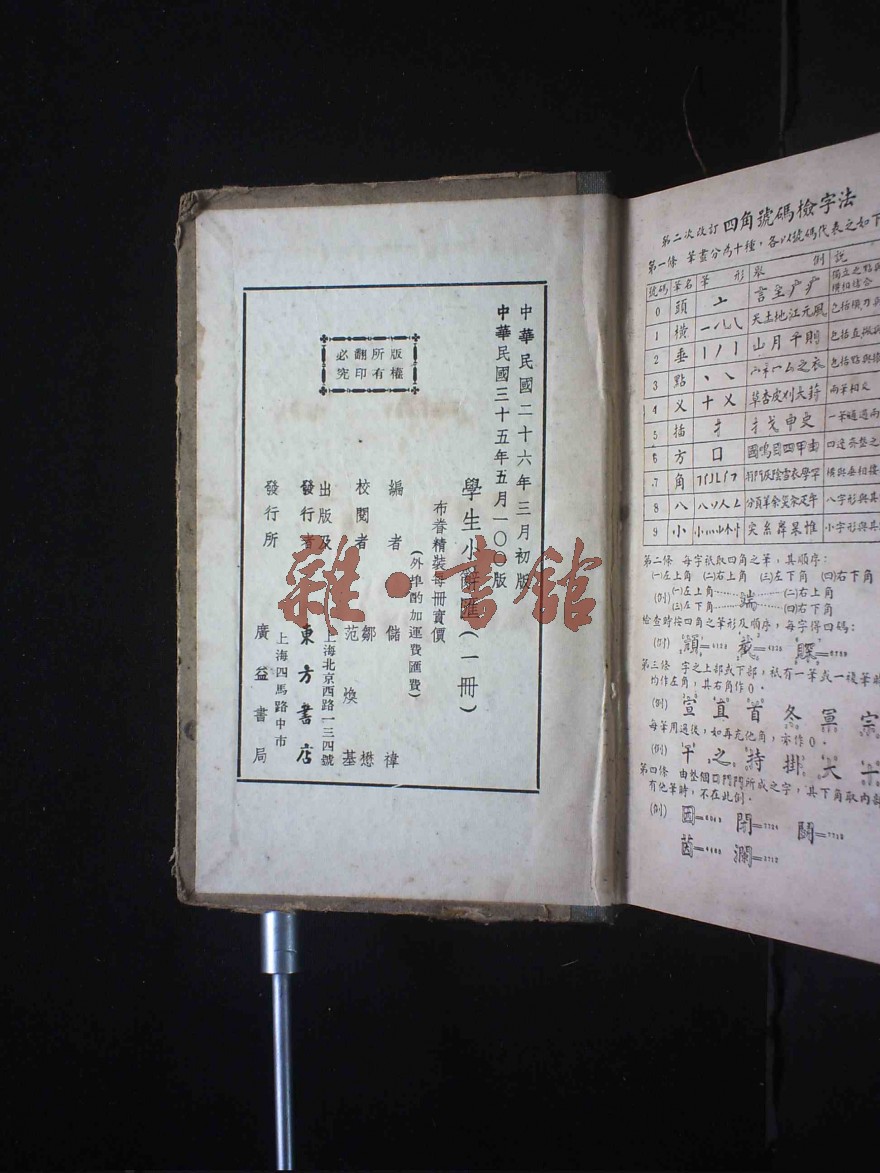 中華民國二十六年三月初版
中華民國三十五年五月一〇〇版
學生小辭匯(一冊)
布脊精裝每冊實價
(外埠酌加運費匯費)
編者 儲禕
校閱者 鄒懋
范煥基
出版及發行者 上海北京西路一三四號
東方書店
發行所 上海四馬路中市
廣益書局
版權所有
翻印必究
雜·書館
第二次改訂 四角號碼檢字法
第一條 筆畫分為十種,各以號碼代表之如下
號碼 筆名 筆形 舉例 說
0 頭 亠 言主广疒 獨立之點與
橫相結合
1 橫 天土地江元風 包括橫刁與
2 垂 山月千則 包括直撇與
3 點 包括點與捺
4 叉 十乂 草杏皮刈大葑 兩筆相交
5 插 扌 扌戈申史 一筆通過兩
6 方 口 國鳴目四甲由 四邊齊整之
7 角 橫與垂相接
8 八 八丷人𠆢 八字形與其
9 小 尖糸粦杲惟 小字形與其
第二條 每字祇取四角之筆,其順序:
(一)左上角 (二)右上角 (三)左下角 (四)右下角
(例) (一)左上角……端……(二)右上角
(三)左下角……(四)右下角
檢查時按四角之筆形及順序,每字得四碼:
(例) 顏=0128 截=4325
第三條 字之上部或下部,祇有一筆或一複筆時
均作左角,其右角作0.
(例) 宣 直 首 冬 軍 宗
每筆用過後,如再充他角,亦作0.
(例) 干 之 持 掛 大 十
第四條 由整個囗門鬥所成之字,其下角取內部
有他筆時,不在此例.
(例) 因=6043 閉=7724 鬭=7712
茵=4460 瀾=3712